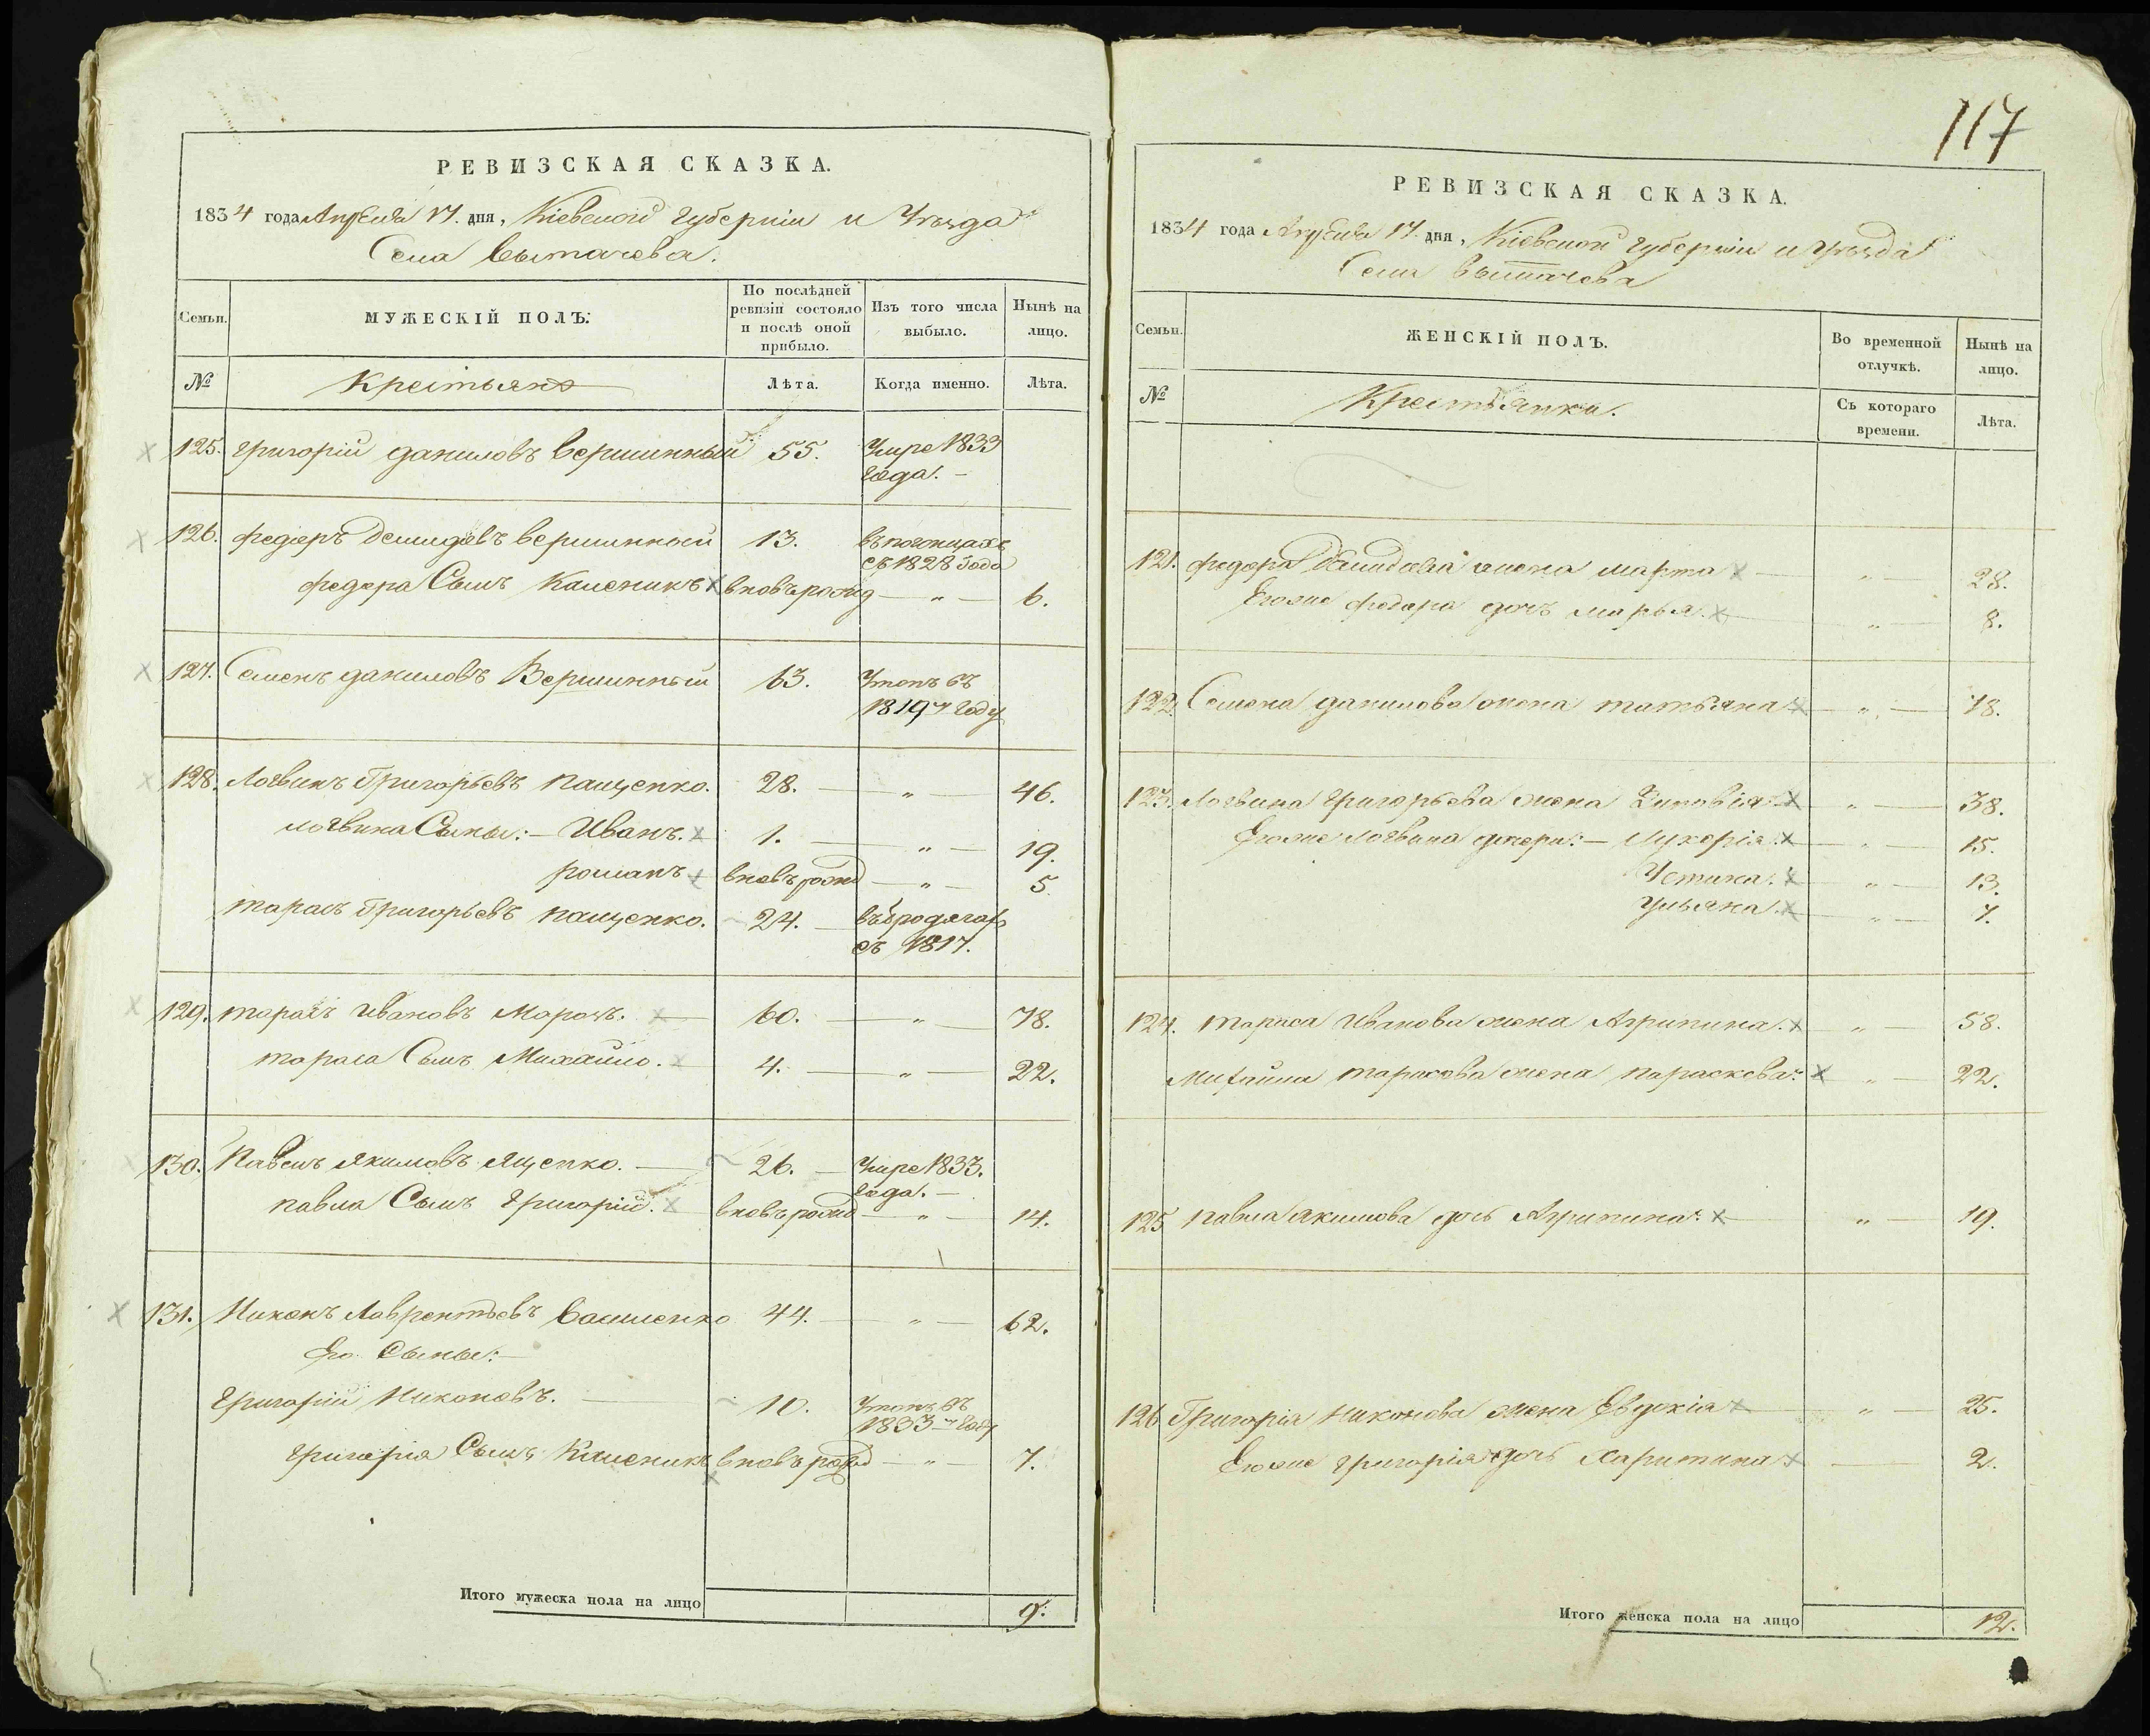 РЕВИЗСКАЯ СКАЗКА.
1834 года Апреля 17. дня, Кіевской Губерніи и Уѣзда
Села Вытачева.
Семьи.
МУЖЕСКІЙ ПОЛЪ.
По послѣдней ревизіи состояло и послѣ оной прибыло.
Изъ того числа выбыло.
Нынѣ на лицо.
№
Крестьяне
Лѣта.
Когда именно.
Лѣта.
125. Григорій Даниловъ Вершинный 55. Умре 1833
года. —
126. Федоръ Демидовъ Вершинный 13.
съ 1828 года
Федора Сынъ Каленикъ вновь рожд — „ — 6.
127. Семенъ Даниловъ Вершинный 63.
1819 году
128. Логвинъ Григорьевъ Пащенко. 28. — „ — 46.
Логвина Сыны: — Иванъ. 1. — „ — 19.
Романъ вновь рожд — „ — 5.
Тарасъ Григорьевъ Пащенко. 24. — въ бродягах
съ 1817.
129. Тарасъ Ивановъ Морозъ. 60. — „ — 78.
Тараса Сынъ Михайло. 4. — „ — 22.
130. Павелъ Якимовъ Ященко. — 26. — Умре 1833.
года. —
Павла Сынъ Григорій. вновь рожд — „ — 14.
131. Никонъ Лаврентьевъ Василенко 44. — „ — 62.
Его Сыны: —
Григорій Никоновъ. — 10.
1833 году
Григорія Сынъ Каленикъ вновь рожд — „ — 7.
Итого мужеска пола на лицо 9.
117
РЕВИЗСКАЯ СКАЗКА.
1834 года Апреля 17. дня, Кіевской Губерніи и Уѣзда
Села Вытачева
Семьи.
ЖЕНСКІЙ ПОЛЪ.
Во временной отлучкѣ.
Нынѣ на лицо.
№
Крестьянки.
Съ котораго времени.
Лѣта.
121. Федора Демидова жена Марта — „ — 28.
Егоже Федора дочь Марья. — „ — 8.
122. Семена Данилова жена Татьяна — „ — 78.
123. Логвина Григорьева жена Зиновія — „ — 38.
Егоже Логвина дочери: — Лукерія. — „ — 15.
Устина. — „ — 13.
Ульяна. — „ — 7.
124. Тараса Иванова жена Агрипина. — „ — 58.
Михайла Тарасова жена Параскева: — „ — 22.
125 Павла Якимова дочь Агрипина: — „ — 19.
126 Григорія Никонова жена Евдокія — „ — 25.
Егоже Григорія дочь Харитина — 2.
Итого женска пола на лицо 12.